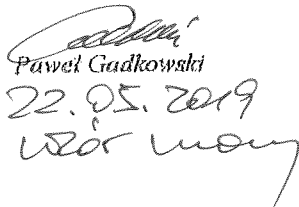 Paweł Gadkowski
22.05.2019
wzór umowy